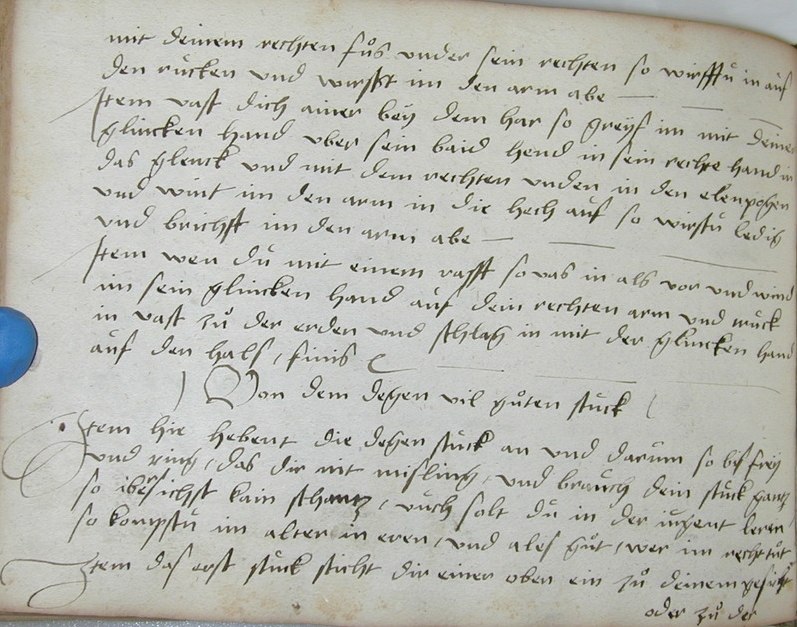 mit deinem rechten fůs vnder sein rechten so wirffstu in auf
den rucken vnd wirfst im den arm abe
Item vast dich ainer bey dem har so greyf im mit deiner
glincken hand vber sein baid hend in sein rechte hand in
das glenck vnd mit dem rechten vnden in den elenpogen
vnd wint im den arm in die hech auf so wirstu ledig
vnd brichst im den arm abe
Item wen du mit einem rafft so vas in als vor vnd wind
im sein glincken hand auf dein rechten arm vnd ruck
in vast zů der erden vnd schlag in mit der glincken hand
auf den hals / finis
Von dem degen vil gůten stuck
Item hie hebent die degen stuck an vnd darum so bis frey
vnd ring / das dir nit misling / vnd brauch dein stuck gantz
so ibersichst kain schantz / vnch solt du in der iugent leren
so kompstu im alter in eren / vnd ales gůt / wer im recht tůt
Item das erst stuck sticht dir einer oben ein zů deinem gesicht
oder zů der